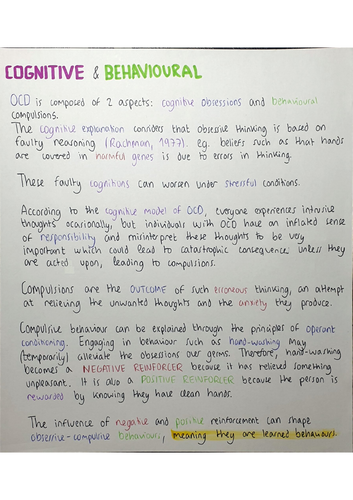 COGNITIVE & BEHAVIOURAL
OCD is composed of 2 aspects: cognitive obsessions and behavioural
compulsions.
The cognitive explanation considers that obsessive thinking is based on
faulty reasoning (Rachman, 1977). eg. beliefs such as that hands
are covered in harmful genes is due to errors in thinking.
These faulty cognitions can worsen under stressful conditions.
According to the cognitive model of OCD, everyone experiences intrusive
thoughts ocasionally, but individuals with OCD have an inflated sense
of responsibility and misinterpret these thoughts to be very
important which could lead to catastrophic consequences unless they
are acted upon, leading to compulsions.
Compulsions are the OUTCOME of such erroneous thinking, an attempt
at relieving the unwanted thoughts and the anxiety they produce.
Compulsive behaviour can be explained through the principles of operant
conditioning. Engaging in behaviour such as hand-washing may
(temporarily) alleviate the obsessions over germs. Therefore, hand-washing
becomes a NEGATIVE REINFORCER because it has relieved something
unpleasant. It is also a POSITIVE REINFORCER because the person is
rewarded by knowing they have clean hands.
The influence of negative and positive reinforcement can shape
obsessive-compulsive behaviours, meaning they are learned behaviours